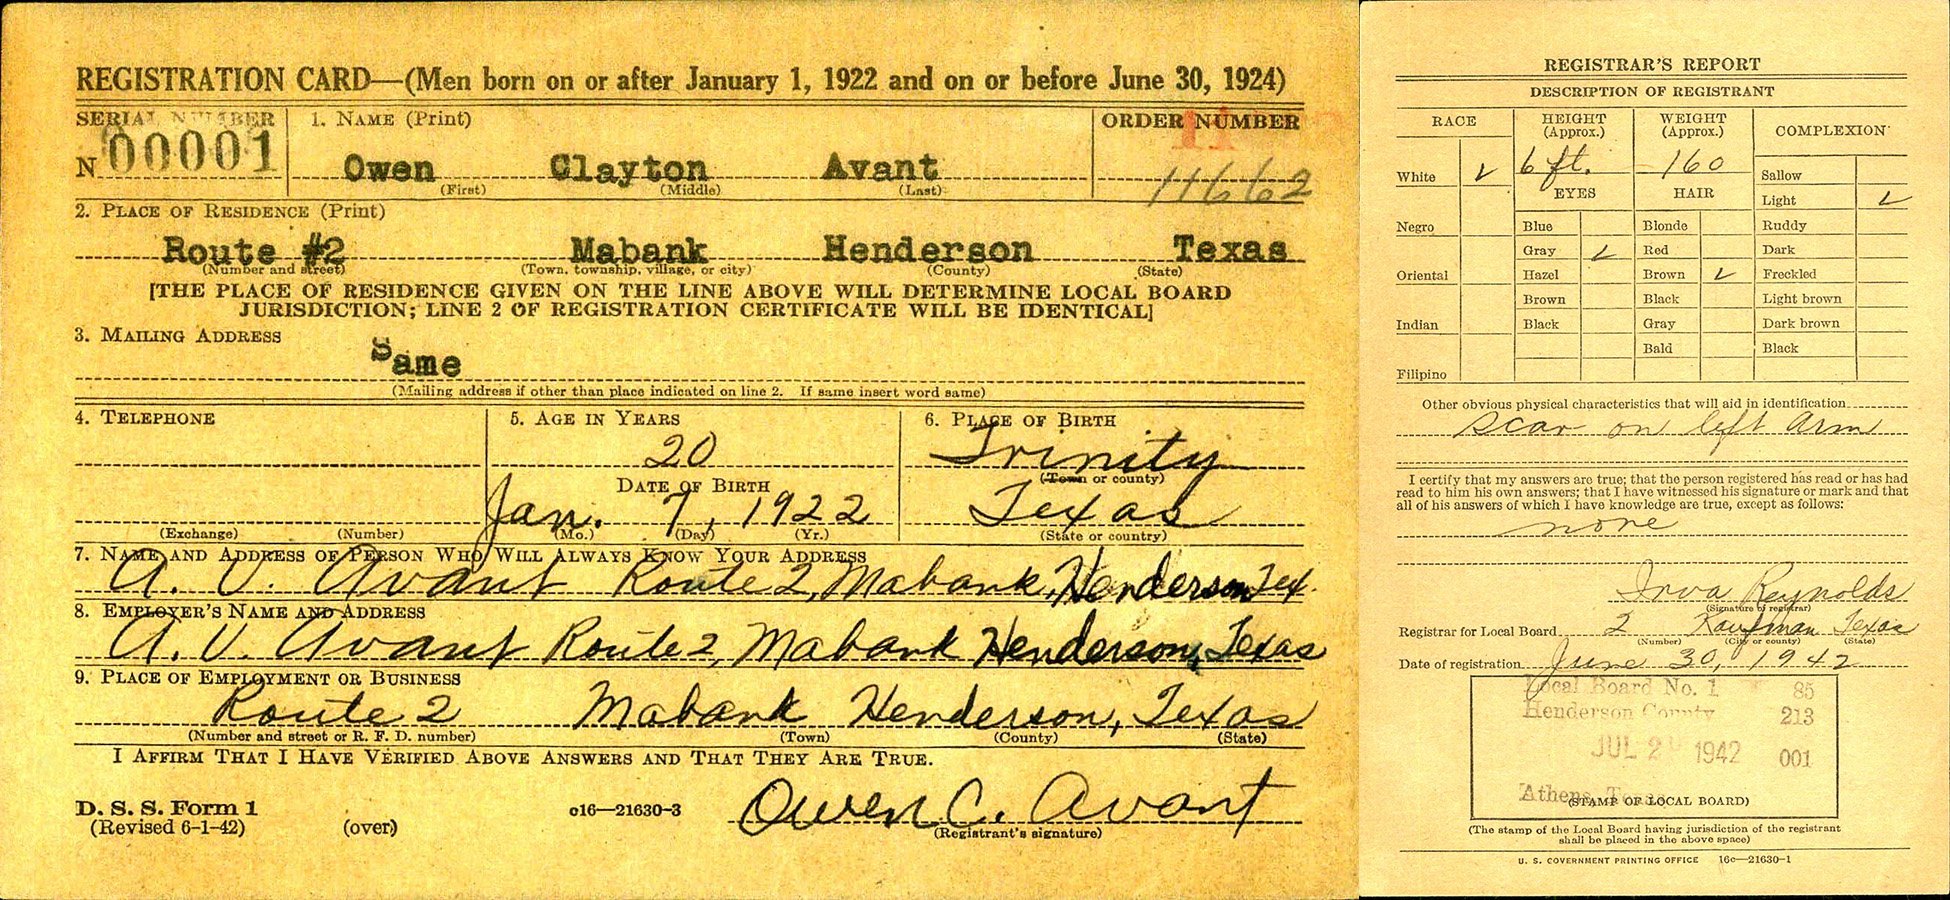 REGISTRATION CARD—(Men born on or after January 1, 1922 and on or before June 30, 1924)
SERIAL NUMBER
N 00001
1. NAME (Print)
Owen Clayton Avant
(First) (Middle) (Last)
ORDER NUMBER
11662
2. PLACE OF RESIDENCE (Print)
Route #2 Mabank Henderson Texas
(Number and street) (Town, township, village, or city) (County) (State)
[THE PLACE OF RESIDENCE GIVEN ON THE LINE ABOVE WILL DETERMINE LOCAL BOARD
JURISDICTION; LINE 2 OF REGISTRATION CERTIFICATE WILL BE IDENTICAL]
3. MAILING ADDRESS
Same
(Mailing address if other than place indicated on line 2. If same insert word same)
4. TELEPHONE
(Exchange) (Number)
5. AGE IN YEARS
20
DATE OF BIRTH
Jan. 7, 1922
(Mo.) (Day) (Yr.)
6. PLACE OF BIRTH
Trinity
(Town or county)
Texas
(State or country)
7. NAME AND ADDRESS OF PERSON WHO WILL ALWAYS KNOW YOUR ADDRESS
A. V. Avant Route 2, Mabank, Henderson Tex.
8. EMPLOYER'S NAME AND ADDRESS
A. V. Avant Route 2, Mabank Henderson, Texas
9. PLACE OF EMPLOYMENT OR BUSINESS
Route 2 Mabank Henderson, Texas
(Number and street or R. F. D. number) (Town) (County) (State)
I AFFIRM THAT I HAVE VERIFIED ABOVE ANSWERS AND THAT THEY ARE TRUE.
D. S. S. Form 1
(Revised 6-1-42) (over)
c16—21630-3
Owen C. Avant
(Registrant's signature)
REGISTRAR'S REPORT
DESCRIPTION OF REGISTRANT
RACE
White ✓
Negro
Oriental
Indian
Filipino
HEIGHT
(Approx.)
6 ft.
EYES
Blue
Gray ✓
Hazel
Brown
Black
WEIGHT
(Approx.)
160
HAIR
Blonde
Red
Brown ✓
Black
Gray
Bald
COMPLEXION
Sallow
Light ✓
Ruddy
Dark
Freckled
Light brown
Dark brown
Black
Other obvious physical characteristics that will aid in identification
Scar on left arm
I certify that my answers are true; that the person registered has read or has had
read to him his own answers; that I have witnessed his signature or mark and that
all of his answers of which I have knowledge are true, except as follows:
none
Reynolds
(Signature of registrar)
Registrar for Local Board 2 Kaufman Texas
(Number) (City or county) (State)
Date of registration June 30, 1942
Local Board No. 1 85
Henderson County 213
JUL 2 1942 001
Athens, Texas
(STAMP OF LOCAL BOARD)
(The stamp of the Local Board having jurisdiction of the registrant
shall be placed in the above space)
U. S. GOVERNMENT PRINTING OFFICE 16c—21630-1